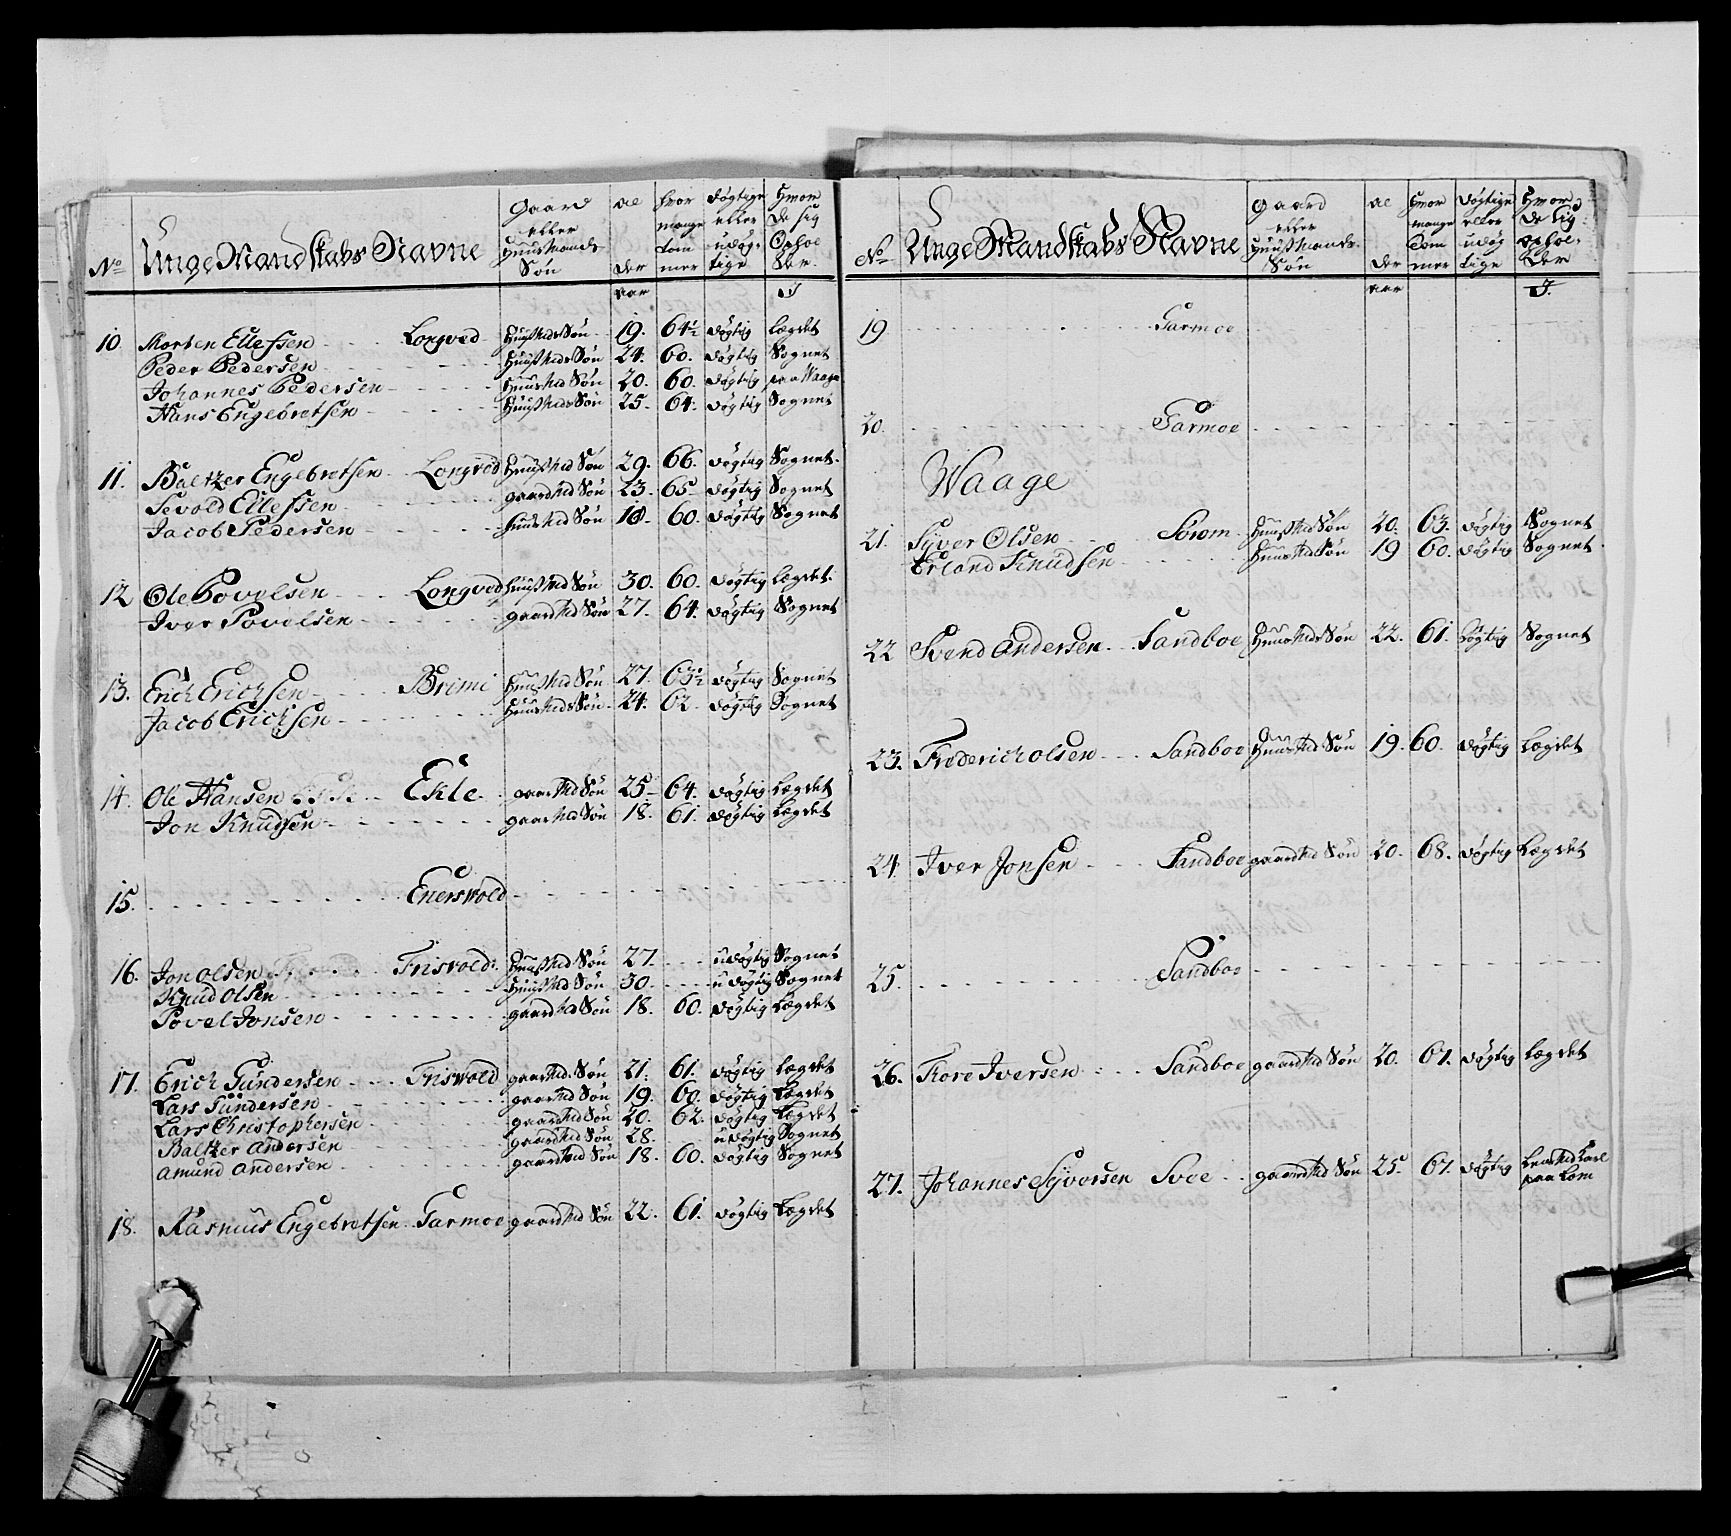 No Unge Mandskabs Navne Gaard eller Huusmands Søn al der aar hvor mange tommer døgtige eller udøgtige Hvor de sig Opholder
I
10. Morten Ellefsen Longved Huusmds Søn 19. 64½ døgtig Lægdet
Peder Pedersen Huusmds Søn 24. 60. døgtig Sognet
Johannes Pedersen Huusmds Søn 20. 60. døgtig paa Waage
Hans Engebretsen Huusmds Søn 25. 64. døgtig Sognet
11. Baltzer Engebretsen Longved Huusmd Søn 29. 66. døgtig Sognet
Sevold Ellefsen gaardmd Søn 23. 65. døgtig Sognet
Jacob Pedersen Huusmd Søn 60. døgtig Sognet
12 Ole Povelsen Longved Huusmd Søn 30. 60. døgtig Lægdet
Iver Povelsen gaardmd Søn 27. 64. døgtig Sognet
13. Erich Erichsen Brimi Huusmd Søn 27. 63½ døgtig Sognet
Jacob Erichsen Huusmds Søn 24. 62. døgtig Sognet
14. Ole Hansen Ekle gaardmd Søn 25. 64. døgtig Lægdet
Jon Knudsen gaardmd Søn 18. 61. døgtig Lægdet
15. Enersvold
16. Jon Olsen Frisvold Huusmd Søn 27. udøgtig Sognet
Knud Olsen Huusmd Søn 30. udøgtig Sognet
Povel Jonsen gaardmd Søn 18. 60. døgtig Lægdet
17. Erich Gundersen Frisvold gaardmd Søn 21. 61. døgtig Lægdet
Lars Gundersen gaardmd Søn 19. 60. døgtig Lægdet
Lars Christophersen gaardmd Søn 20. 62. døgtig Lægdet
Baltzer Andersen gaardmd Søn 28. udøgtig Sognet
Amund Andersen gaardmd Søn 18. 60. døgtig Sognet
18. Rasmus Engebretsen Garmoe gaardmd Søn 22. 61. døgtig Lægdet
No Unge Mandskabs Navne gaard eller Huusmands Søn al der aar Hvor mange Tommer døgtige eller udøgtige Hvor de sig opholder
I.
19. Garmoe
20. Garmoe
Waage
21. Syver Olsen Sørom Huusmd Søn 20. 63. døgtig Sognet
Erland Knudsen Huusmd Søn 19 60. døgtig Sognet
22 Svend Andersen Sandboe Huusmds Søn 22. 61. døgtig Sognet
23. Frederich Olsen Sandboe Huusmd Søn 19. 60. døgtig Lægdet
24. Iver Jonsen Sandboe gaardmd Søn 20. 68. døgtig Lægdet
25. Sandboe
26. Tore Iversen Sandboe gaardmd Søn 20. 67. døgtig Lægdet
27. Johannes Syversen Svee gaardmd Søn 25. 67. døgtig paa Lom